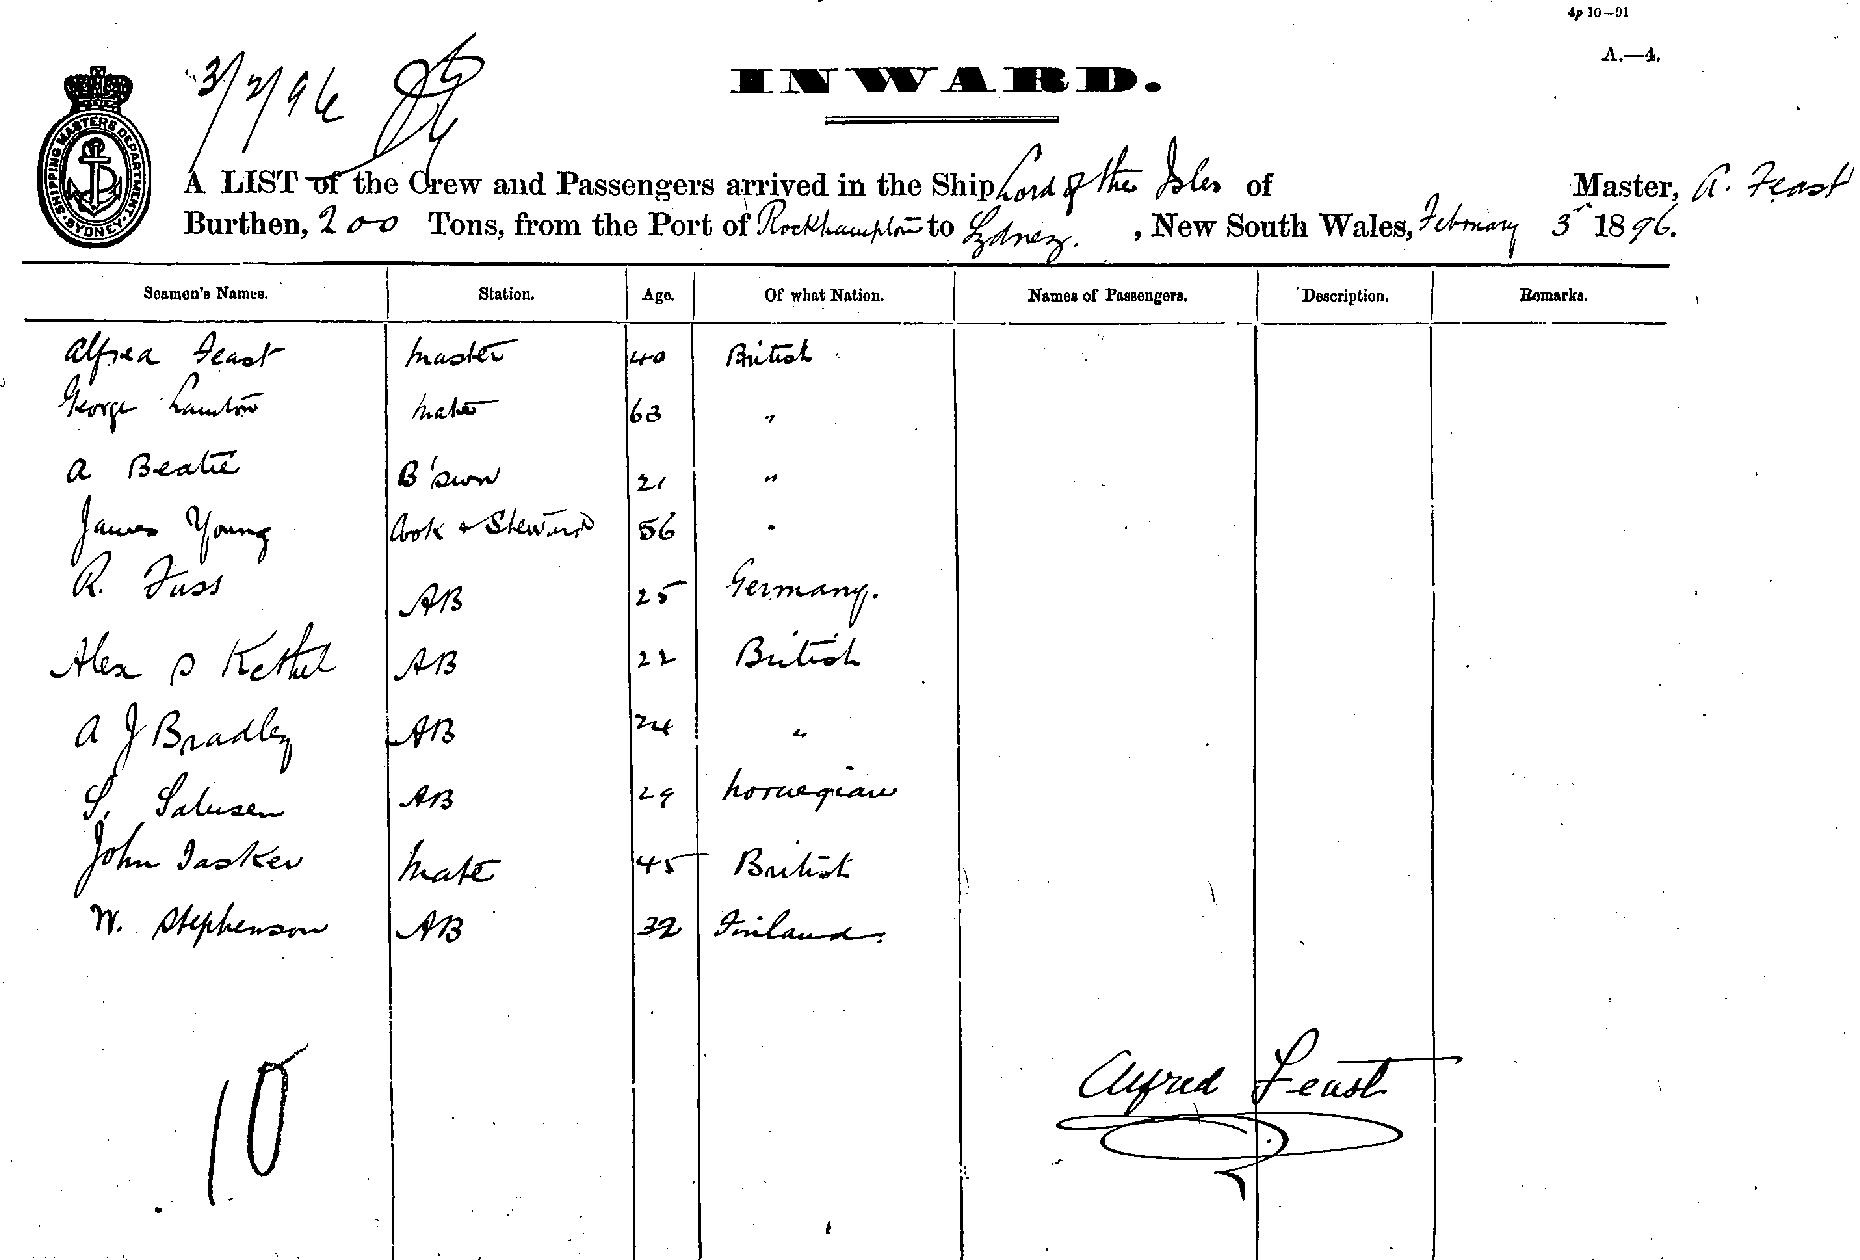 4p 10—91
A.—4.
3/2/96
INWARD.
SHIPPING MASTERS DEPARTMENT. SYDNEY.
A LIST of the Crew and Passengers arrived in the Ship Lord of the Isles of Master, A. Feast
Burthen, 200 Tons, from the Port of Rockhampton to Sydney. , New South Wales, February 3rd 1896.
Seamen's Names. Station. Age. Of what Nation. Names of Passengers. Description. Remarks.
Alfred Feast Master 40 British
George Mate 63 "
A Beatie B'swn 21 "
James Young Cook + Steward 56 "
R. Fuss AB 25 Germany.
Alex D Kethel AB 22 British
A J Bradley AB 24 "
S. AB 29 Norwegian
John Tasker Mate 45 British
W. Stephenson AB 32 Finland.
10
Alfred Feast